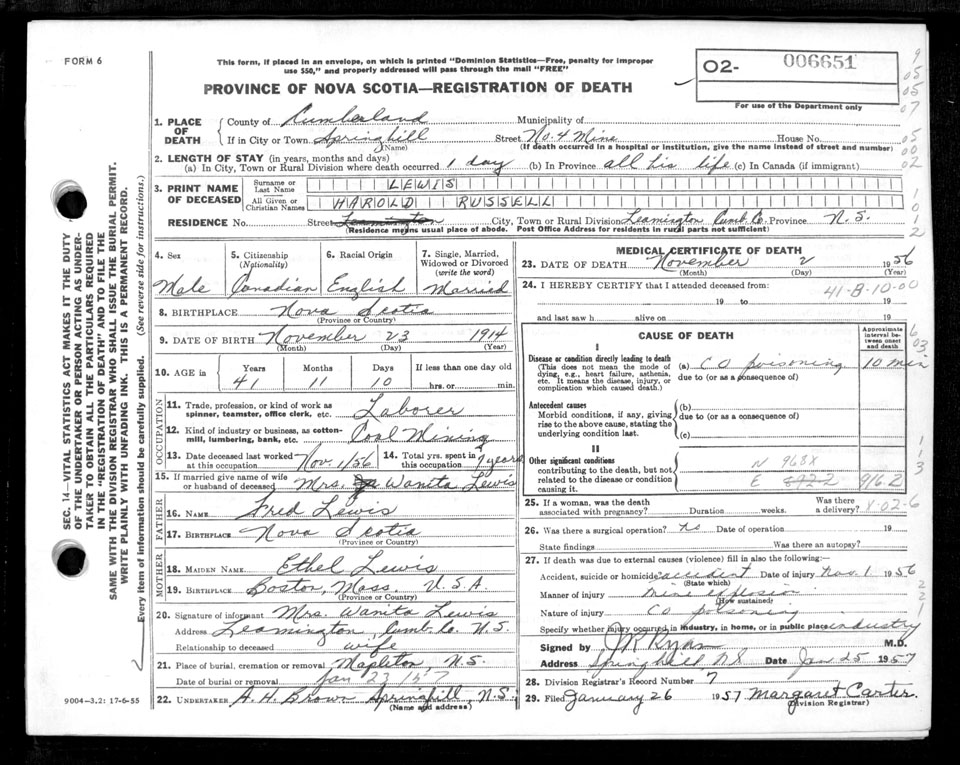 FORM 6
This form, if placed in an envelope, on which is printed "Dominion Statistics—Free, penalty for improper
use $50," and properly addressed will pass through the mail "FREE"
PROVINCE OF NOVA SCOTIA—REGISTRATION OF DEATH
O2- 006651
For use of the Department only
9
05
05
07
05
00
02
1
0
1
2
SEC. 14—VITAL STATISTICS ACT MAKES IT THE DUTY
OF THE UNDERTAKER OR PERSON ACTING AS UNDER-
TAKER TO OBTAIN ALL THE PARTICULARS REQUIRED
IN THE "REGISTRATION OF DEATH" AND TO FILE THE
SAME WITH THE DIVISION REGISTRAR WHO SHALL ISSUE THE BURIAL PERMIT.
WRITE PLAINLY WITH UNFADING INK. THIS IS A PERMANENT RECORD.
Every item of information should be carefully supplied. (See reverse side for instructions.)
1. PLACE OF DEATH
County of Cumberland Municipality of
If in City or Town Springhill Street No. 4 Mine House No.
(Name) (If death occurred in a hospital or institution, give the name instead of street and number)
2. LENGTH OF STAY (in years, months and days)
(a) In City, Town or Rural Division where death occurred 1 day (b) In Province all his life (c) In Canada (if immigrant)
3. PRINT NAME OF DECEASED
Surname or Last Name LEWIS
All Given or Christian Names HAROLD RUSSELL
RESIDENCE No. Street Leamington City, Town or Rural Division Leamington Cumb. Co. Province N. S.
(Residence means usual place of abode. Post Office Address for residents in rural parts not sufficient)
4. Sex 5. Citizenship (Nationality) 6. Racial Origin 7. Single, Married, Widowed or Divorced (write the word)
Male Canadian English Married
8. BIRTHPLACE Nova Scotia
(Province or Country)
9. DATE OF BIRTH November 23 1914
(Month) (Day) (Year)
10. AGE Years Months Days If less than one day old
41 11 10 hrs. or min.
OCCUPATION
11. Trade, profession, or kind of work as
spinner, teamster, office clerk, etc. Laborer
12. Kind of industry or business, as cotton-
mill, lumbering, bank, etc. Coal Mining
13. Date deceased last worked at this occupation Nov. 1/56 14. Total yrs. spent in this occupation 7 years
15. If married give name of wife
or husband of deceased Mrs. Wanita Lewis
FATHER
16. NAME Fred Lewis
17. BIRTHPLACE Nova Scotia
(Province or Country)
MOTHER
18. MAIDEN NAME Ethel Lewis
19. BIRTHPLACE Boston, Mass. U.S.A.
(Province or Country)
20. Signature of informant Mrs. Wanita Lewis
Address Leamington, Cumb. Co. N. S.
Relationship to deceased wife
21. Place of burial, cremation or removal Mapleton, N.S.
Date of burial or removal Jan 23 1957
22. UNDERTAKER A. H. Brown Springhill, N.S.
(Name and address)
9004-3.2: 17-6-55
MEDICAL CERTIFICATE OF DEATH
23. DATE OF DEATH November 2 1956
(Month) (Day) (Year)
24. I HEREBY CERTIFY that I attended deceased from:
41-8-10-00
19 to 19
and last saw h alive on 19
CAUSE OF DEATH
Approximate interval between onset and death
6
03
I
Disease or condition directly leading to death
(This does not mean the mode of
dying, e.g., heart failure, asthenia,
etc. It means the disease, injury, or
complication which caused death.)
(a) CO poisoning 10 min
due to (or as a consequence of)
Antecedent causes
Morbid conditions, if any, giving
rise to the above cause, stating the
underlying condition last.
(b)
due to (or as a consequence of)
(c)
II
Other significant conditions
contributing to the death, but not
related to the disease or condition
causing it.
N 968X
E 8922 9162
1
1
3
25. If a woman, was the death associated with pregnancy? Duration weeks. Was there a delivery?
X-02-6
26. Was there a surgical operation? no Date of operation 19
State findings Was there an autopsy?
27. If death was due to external causes (violence) fill in also the following:—
Accident, suicide or homicide accident Date of injury Nov. 1 1956
(State which)
Manner of injury mine explosion
(How sustained)
Nature of injury CO poisoning
2
2
1
Specify whether injury occurred in industry, in home, or in public place industry
Signed by J R Ryan M.D.
Address Springhill NS Date Jan 25 1957
28. Division Registrar's Record Number 7
29. Filed January 26 1957 Margaret Carter
(Division Registrar)